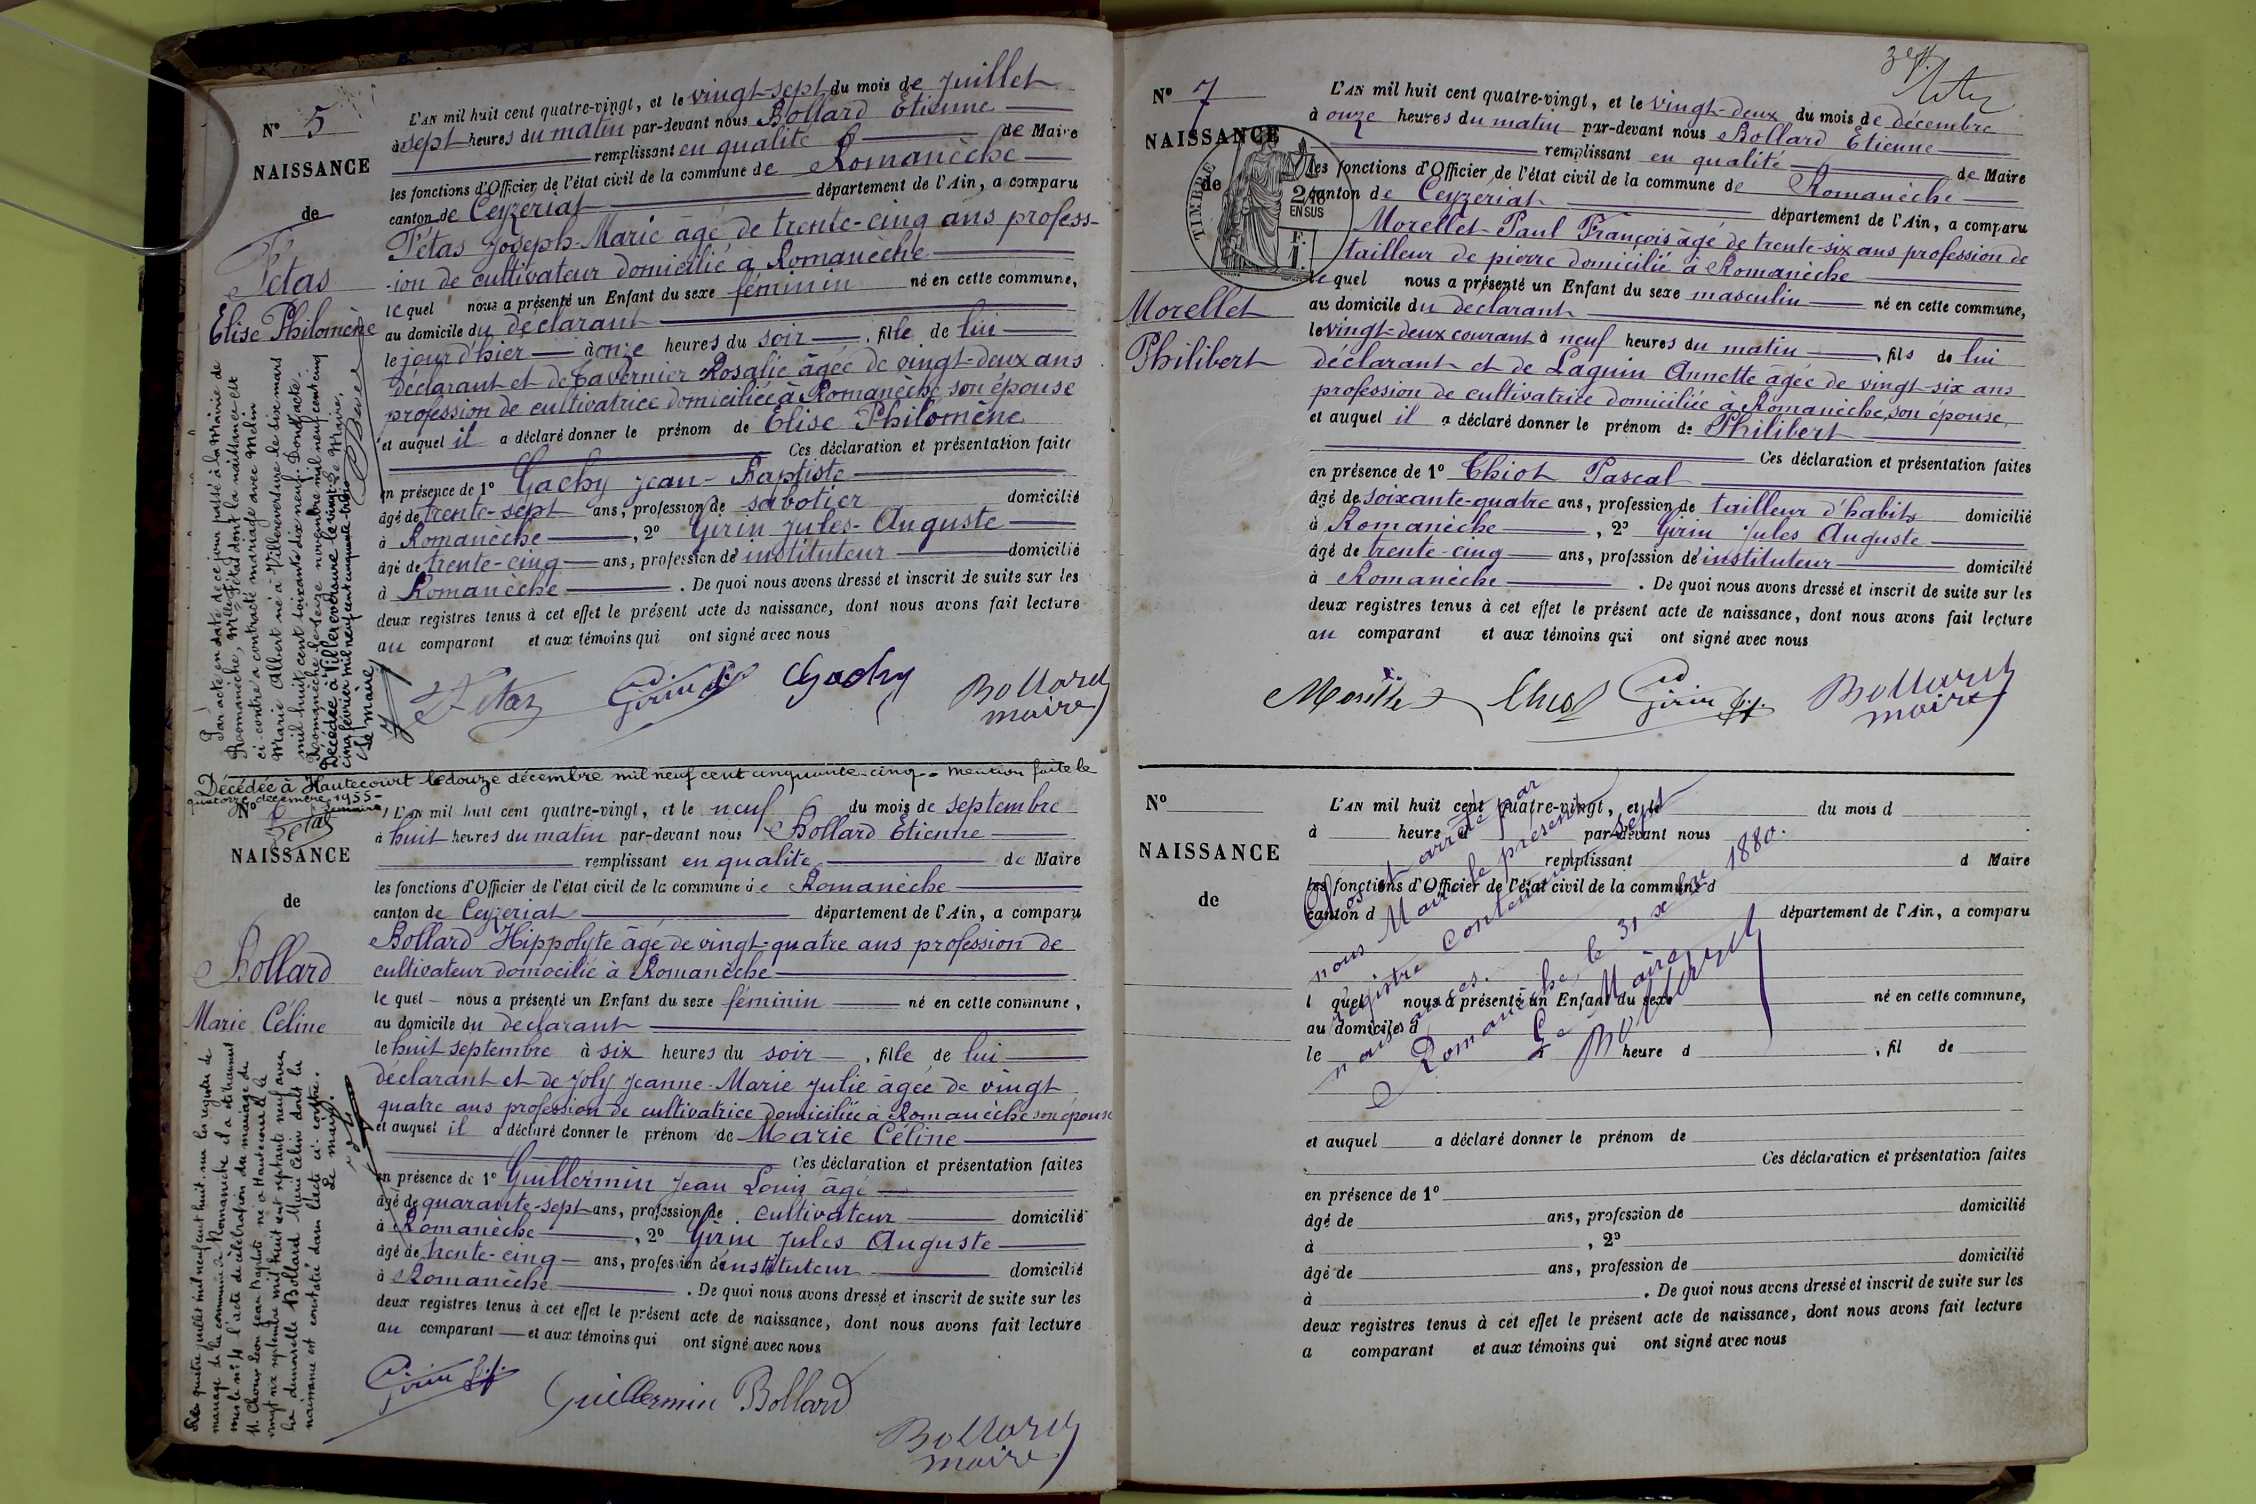 N° 5
NAISSANCE
de
Tétas
Elise Philomène
L'AN mil huit cent quatre-vingt, et le vingt-sept du mois de juillet
à sept heures du matin par-devant nous Bollard Etienne
remplissant en qualité de Maire
les fonctions d'Officier de l'état civil de la commune de Romanèche
canton de Ceyzeriat département de l'Ain, a comparu
Tétas Joseph-Marie âgé de trente-cinq ans profess-
-ion de cultivateur domicilié à Romanèche
lequel nous a présenté un Enfant du sexe féminin né en cette commune,
au domicile du déclarant
le jour d'hier à onze heures du soir, fille de lui
déclarant et de Tavernier Rosalie âgée de vingt-deux ans
profession de cultivatrice domiciliée à Romanèche son épouse
et auquel il a déclaré donner le prénom de Elise Philomène
Ces déclaration et présentation faites
en présence de 1° Gachy Jean-Baptiste
âgé de trente-sept ans, profession de sabotier domicilié
à Romanèche, 2° Girin Jules-Auguste
âgé de trente-cinq ans, profession de instituteur domicilié
à Romanèche. De quoi nous avons dressé et inscrit de suite sur les
deux registres tenus à cet effet le présent acte de naissance, dont nous avons fait lecture
au comparant et aux témoins qui ont signé avec nous
Tétaz Girin Gachy Bollard
maire
Par acte en date de ce jour passé à la Mairie de
Romanèche, Melle Fétas dont la naissance est
ci-contre a contracté mariage avec Melin
Marie Albert né à Villereversure le seize mars
mil huit cent soixante dix neuf. Dont acte.
Romanèche le seize novembre mil neuf cent cinq
Le Maire,
Décédée à Villereversure le vingt
cinq février mil neuf cent cinquante-trois
Le maire
Décédée à Hautecourt le douze décembre mil neuf cent cinquante-cinq. Mention faite le
quatorze décembre 1955-
N° 6
NAISSANCE
de
Bollard
Marie Céline
L'AN mil huit cent quatre-vingt, et le neuf du mois de septembre
à huit heures du matin par-devant nous Bollard Etienne
remplissant en qualité de Maire
les fonctions d'Officier de l'état civil de la commune de Romanèche
canton de Ceyzeriat département de l'Ain, a comparu
Bollard Hippolyte âgé de vingt-quatre ans profession de
cultivateur domocilié à Romanèche
lequel nous a présenté un Enfant du sexe féminin né en cette commune,
au domicile du déclarant
le huit septembre à six heures du soir, fille de lui
déclarant et de Joly Jeanne-Marie Julie âgée de vingt
quatre ans profession de cultivatrice domiciliée à Romanèche son épouse
et auquel il a déclaré donner le prénom de Marie Céline
Ces déclaration et présentation faites
en présence de 1° Guillermin Jean Louis âgé
âgé de quarante-sept ans, profession de cultivateur domicilié
à Romanèche, 2° Girin Jules Auguste
âgé de trente-cinq ans, profession d'instituteur domicilié
à Romanèche. De quoi nous avons dressé et inscrit de suite sur les
deux registres tenus à cet effet le présent acte de naissance, dont nous avons fait lecture
au comparant et aux témoins qui ont signé avec nous
Girin Guillermin Bollard
Bollard
maire
Le quatre juillet mil neuf cent huit sur les registres de
mariage de la commune de Romanèche il a été
sous le n° 4 l'acte de célébration du mariage de
M. Léon Jean Baptiste né à Hautecourt le
vingt six septembre mil huit cent septante neuf avec
la demoiselle Bollard Marie Célin dont la
naissance est constatée dans l'acte ci-contre.
Le maire.
N° 7
NAISSANCE
de
TIMBRE
2/10
EN SUS
Morellet
Philibert
L'AN mil huit cent quatre-vingt, et le vingt-deux du mois de décembre
à onze heures du matin par-devant nous Bollard Etienne
remplissant en qualité de Maire
les fonctions d'Officier de l'état civil de la commune de Romanèche
canton de Ceyzeriat département de l'Ain, a comparu
Morellet Paul François âgé de trente-six ans profession de
tailleur de pierre domicilié à Romanèche
lequel nous a présenté un Enfant du sexe masculin né en cette commune,
au domicile du déclarant
le vingt-deux courant à neuf heures du matin, fils de lui
déclarant et de Laguin Annette âgée de vingt-six ans
profession de cultivatrice domiciliée à Romanèche, son épouse,
et auquel il a déclaré donner le prénom de Philibert
Ces déclaration et présentation faites
en présence de 1° Chiot Pascal
âgé de soixante-quatre ans, profession de tailleur d'habits domicilié
à Romanèche, 2° Girin Jules Auguste
âgé de trente-cinq ans, profession de instituteur domicilié
à Romanèche. De quoi nous avons dressé et inscrit de suite sur les
deux registres tenus à cet effet le présent acte de naissance, dont nous avons fait lecture
au comparant et aux témoins qui ont signé avec nous
Chiot Girin Bollard
maire
N°
NAISSANCE
de
L'AN mil huit cent quatre-vingt, et le du mois d
à heure d par-devant nous
remplissant d Maire
les fonctions d'Officier de l'état civil de la commune d
canton d département de l'Ain, a comparu
l quel nous a présenté un Enfant du sexe né en cette commune,
au domicile d
le heure d, fil de
et auquel a déclaré donner le prénom de
Ces déclaration et présentation faites
en présence de 1°
âgé de ans, profession de domicilié
à, 2°
âgé de ans, profession de domicilié
à. De quoi nous avons dressé et inscrit de suite sur les
deux registres tenus à cet effet le présent acte de naissance, dont nous avons fait lecture
a comparant et aux témoins qui ont signé avec nous
Clos et arrêté par
nous Maire le présent
registre contenant sept
naissances.
Romanèche, le 31 Xbre 1880.
Le Maire
Bollard